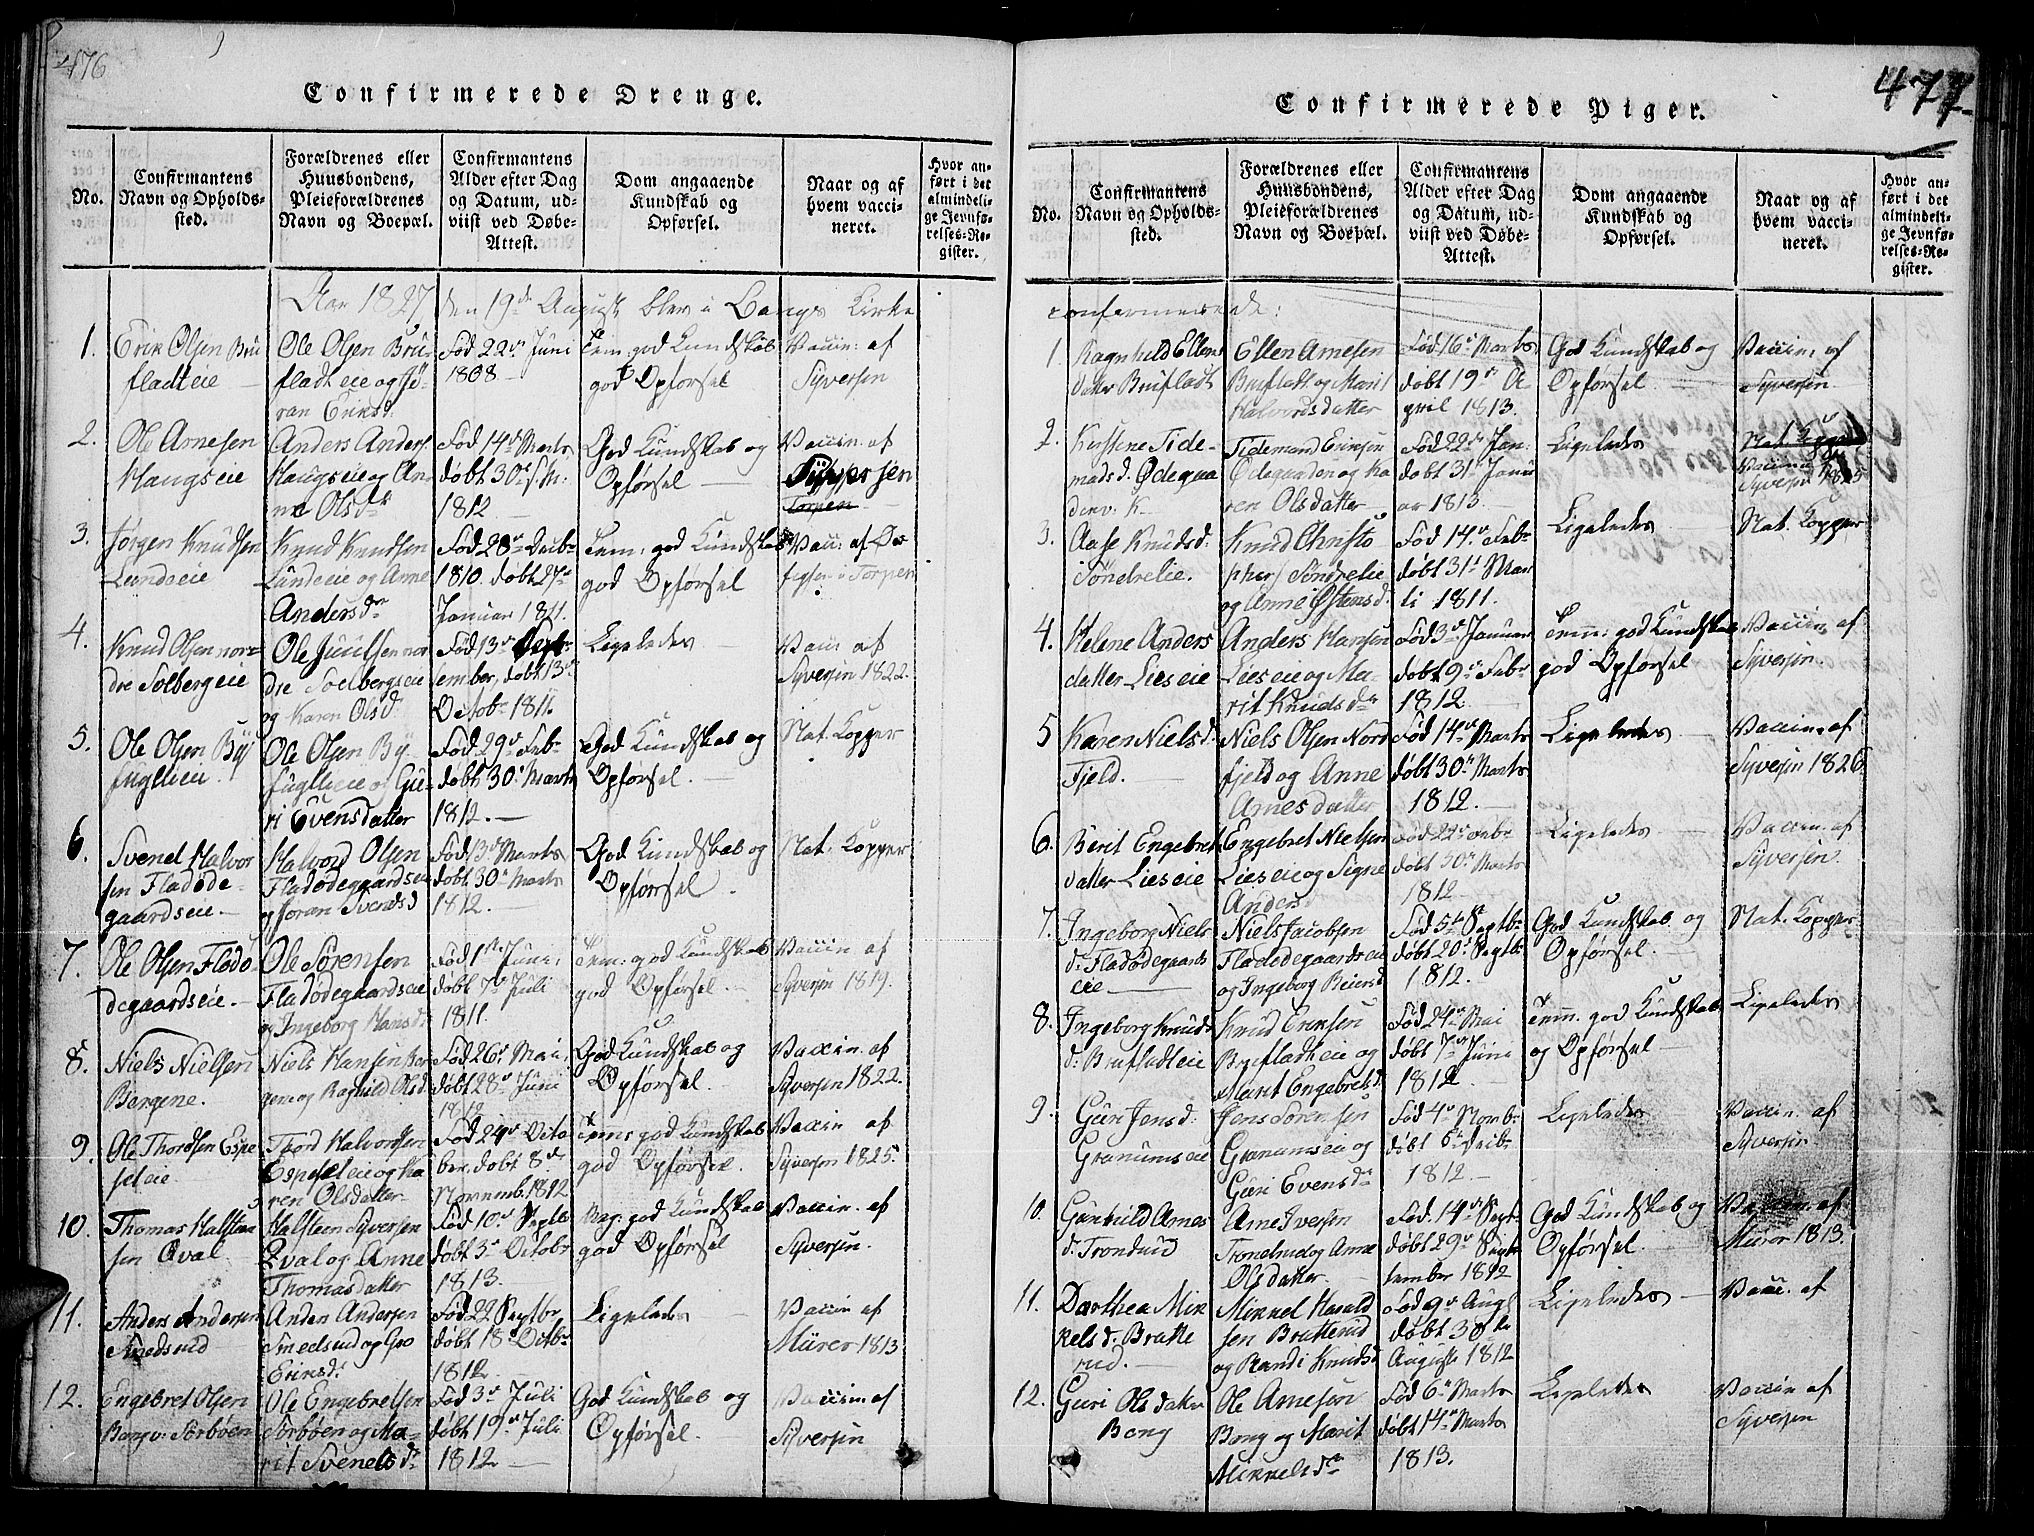 476
Confirmerede Drenge.
No.
Confirmantens
Navn og Opholds-
sted.
Forældrenes eller
Huusbondens,
Pleieforældrenes
Navn og Boepæl.
Confirmantens
Alder efter Dag
og Datum, ud-
viist ved Døbe-
Attest.
Dom angaaende
Kundskab og
Opførsel.
Naar og af
hvem vacci-
neret.
Hvor an-
ført i det
almindeli-
ge Jevnfø-
relses-Re-
gister.
Aar 1827 den 19de August blev i Bangs Kirke
1.
Erik Olsen Bru
fladteie
Ole Olsen Bru-
fladteie og Jø-
ran Eriksd:
Fød 22de Juni
1808
Tem: god Kundskab
god Opførsel
Vaccin: af
Syversen
2.
Ole Arnesen
Haugseie
Anders Anders.
Haugseie og An-
ne Olsdr
Fød 14de Marts
døbt 30te s. M.
1812
God Kundskab og
Opførsel
Vaccin. af
Syversen
Torpen
3.
Jørgen Knudsen
Lundeeie
Knud Knudsen
Lundeeie og Anne
Andersdr
Fød 28de Decbr
1810. døbt 27de
Januar 1811.
Tem: god Kundskab
god Opførsel
Vacci: af
i Torpen
4.
Knud Olsen nor-
dre Solbergeie
Ole Juulsen nor
dre Soelbergseie
og Karen Olsd:
Fød 13de Sept-
tember, døbt 13de
Octobr 1811.
Ligeledes
Vacci af
Syversen 1822.
5.
Ole Olsen By
fuglieie
Ole Olsen By-
fuglieie og Gu-
ri Evensdatter
Fød 29de Febr
døbt 30te Marts
1812.
God Kundskab og
Opførsel.
Nat. Kopper
6.
Svend Halvor
sen Fladøde-
gaardseie.
Halvord Olsen
Fladødegaardseie
og Joran Svendsd
Fød 13de Marts
døbt 30te Marts
1812.
God Kundskab og
Opførsel.
Nat. Kopper
7.
Ole Olsen Fladø-
degaardseie.
Ole Sørensen
Fladødegaardseie
og Ingeborg Hansd:
Fød 1ste Juni,
døbt 7de Juli
1811.
Tem: god Kundskab
god Opførsel.
Vaccin af
Syversen 1819.
8.
Niels Nielsen
Bergene.
Niels Hansen Ber
gene og Ragnild Olsd
Fød 26de Mai,
døbt 28de Juni
1812
God Kundskab og
Opførsel.
Vaccin. af
Syversen 1822.
9.
Ole Thordsen Espe
seteie
Thord Halvordsen
Espeseteie og Ka
ren Olsdatter
Fød 24de Octo
ber, døbt 8de
Novemb. 1812
Tem: god Kundskab
god Opførsel.
Vaccin af
Syversen 1825.
10.
Thomas Halsteen
sen Qval
Halsteen Syversen
Qval og Anne
Thomasdatter
Fød 10de Septb
døbt 3de Octobr
1813.
Meg: god Kundskab
god Opførsel
Vaccin. af
Syversen.
11.
Anders Andersen
Smedsrud
Anders Andersen
Smedsrud og Gro
Eriksd:
Fød 22 Septbr
døbt 18de Octbr
1812.
Ligeledes
Vaccin af
Mürer 1813
12.
Engebret Olsen
Bangv: Sørbøen
Ole Engebretsen
Sørbøen og Ma-
rit Svendsdr
Fød 3de Juli
døbt 19de Juli
1812
God Kundskab og
Opførsel.
Vaccin. af
Syversen
477
Confirmerede Piger.
No.
Confirmantens
Navn og Opholds-
sted.
Forældrenes eller
Huusbondens,
Pleieforældrenes
Navn og Boepæl.
Confirmantens
Alder efter Dag
og Datum, ud-
viist ved Døbe-
Attest.
Dom angaaende
Kundskab og
Opførsel.
Naar og af
hvem vacci-
neret.
Hvor an-
ført i det
almindeli-
ge Jevnfø-
relses-Re-
gister.
confermerede:
1.
Ragnhild Ellens
datter Brufladt
Ellen Arnesen
Brufladt og Marit
Halvordsdatter
Fød 16de Marts
døbt 19de A-
pril 1813.
God Kundskab og
Opførsel.
Vaccin. af
Syversen
2.
Kirstine Tide-
mads d. Ødegaa
denv. K.
Tidemand Eriksen
Ødegaarden og Ka
ren Olsdatter
Fød 22de Jan.
døbt 31te Janu
ar 1813
Ligeledes
Nat. Kopper
Vaccin. af
Syversen 1825
3.
Aase Knudsd:
Søndrelie.
Knud Christo
phers. Søndrelie
og Anne Østensd.
Fød 14de Febr
døbt 31te Mar
ti 1811.
Ligeledes
Nat. Kopper
4.
Helene Anders
datter Lieseie
Anders Hansen
Lieseie og Ma-
rit Knudsdr
Fød 3de Januar
døbt 9de Febr
1812
Temm: god Kundskab
god Opførsel
Vaccin. af
Syversen.
5
Karen Nielsd.
Fjeld.
Niels Olsen Nord
fjeld og Anne
Arnesdatter
Fød 14de Marts
døbt 30te Marts
1812.
Ligeledes
Vaccin. af
Syversen 1826
6.
Berit Engebret
datter Lieseie
Engebret Nielsen
Lieseie og Signe
Andersd
Fød 22de Febr
døbt 30te Marts
1812
Ligeledes
Vaccin. af
Syversen
7.
Ingeborg Niels
d: Fladødegaards
eie
Niels Jacobsen
Fladødegaardseie
og Ingeborg Reiersd
Fød 5te Septbr
døbt 20de Septbr
1812.
God Kundskab og
Opførsel.
Nat. Kopper
8.
Ingeborg Knuds
d: Brufladteie
Knud Eriksen
Brufladteie og
Marit Engebretsd
Fød 24de Mai
døbt 7de Juni
1812
Temm. god Kundskab
og Opførsel
Ligeledes
9.
Guri Jensd.
Granumseie
Jens Sørensen
Granumseie og
Guri Evensdr
Fød 4de Novmbr
døbt 6te Decbr
1812.
Ligeledes
Vaccin. af
Syversen
10.
Gunhild Arnes
d. Trondrud
Arne Iversen
Trondrud og Anne
Olsdatter
Fød. 14de Sept
døbt 29de Sept
tember 1812
God Kundskab og
Opførsel.
Vaccin. af
Mürer 1813.
11.
Dorthea Mik
kelsd. Bratte
rud.
Mikkel Harald
sen Bratterud
og Randi Knudsd
Fød 9de Aug:
døbt 30te
Augusti 1812
Ligeledes
Vacci. af
12.
Guri Olsdater
Bang
Ole Arnesen
Bang og Marit
Mikkelsdr
Fød 6te Marts
døbt 14de Marts
1813.
Ligeledes
Vaccin af
Syversen